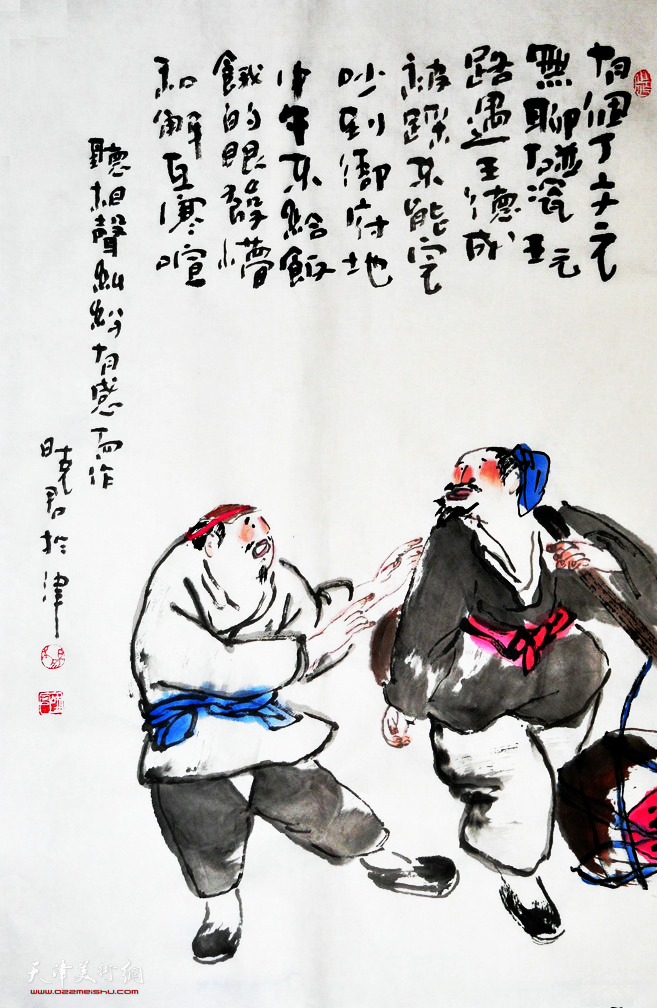 有個丁文元
無聊碰瓷玩
路遇王德成
被踩不能完
吵到御府地
中午不給飯
餓的眼發懵
和解互寒暄
聽相聲糾紛有感而作
曉君於津
天津美術網
www.022meishu.com